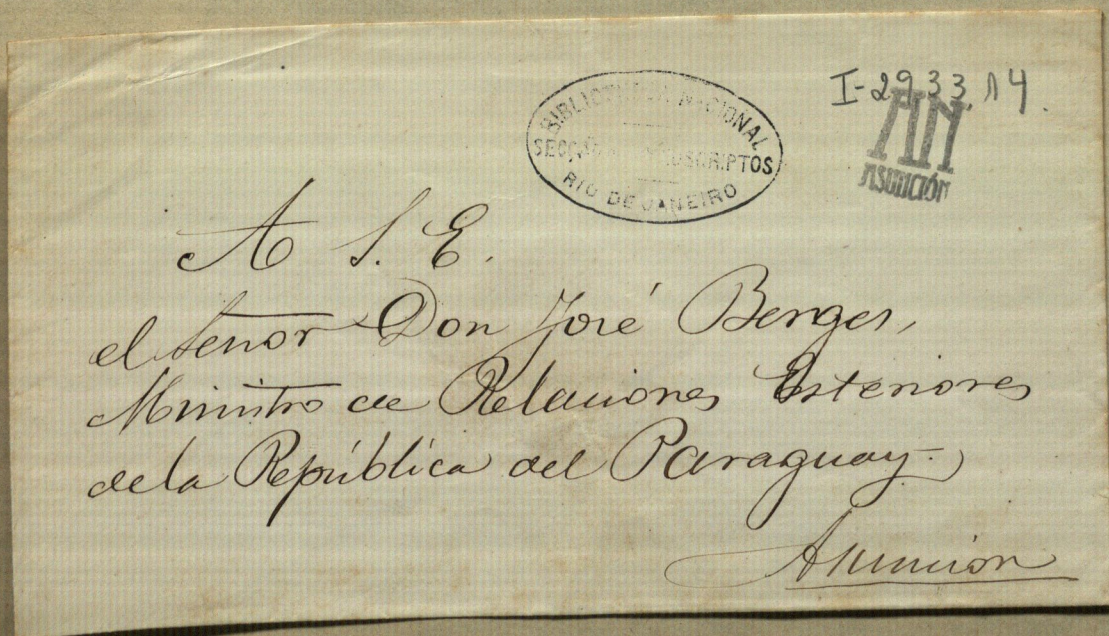 I-29 33 14.
BIBLIOTHECA NACIONAL
SECÇÃO MANUSCRIPTOS
RIO DE JANEIRO
AN
ASUNCIÓN
A S. E.
el Señor Don José Berges,
Ministro de Relaciones Esteriores
de la República del Paraguay
Asuncion